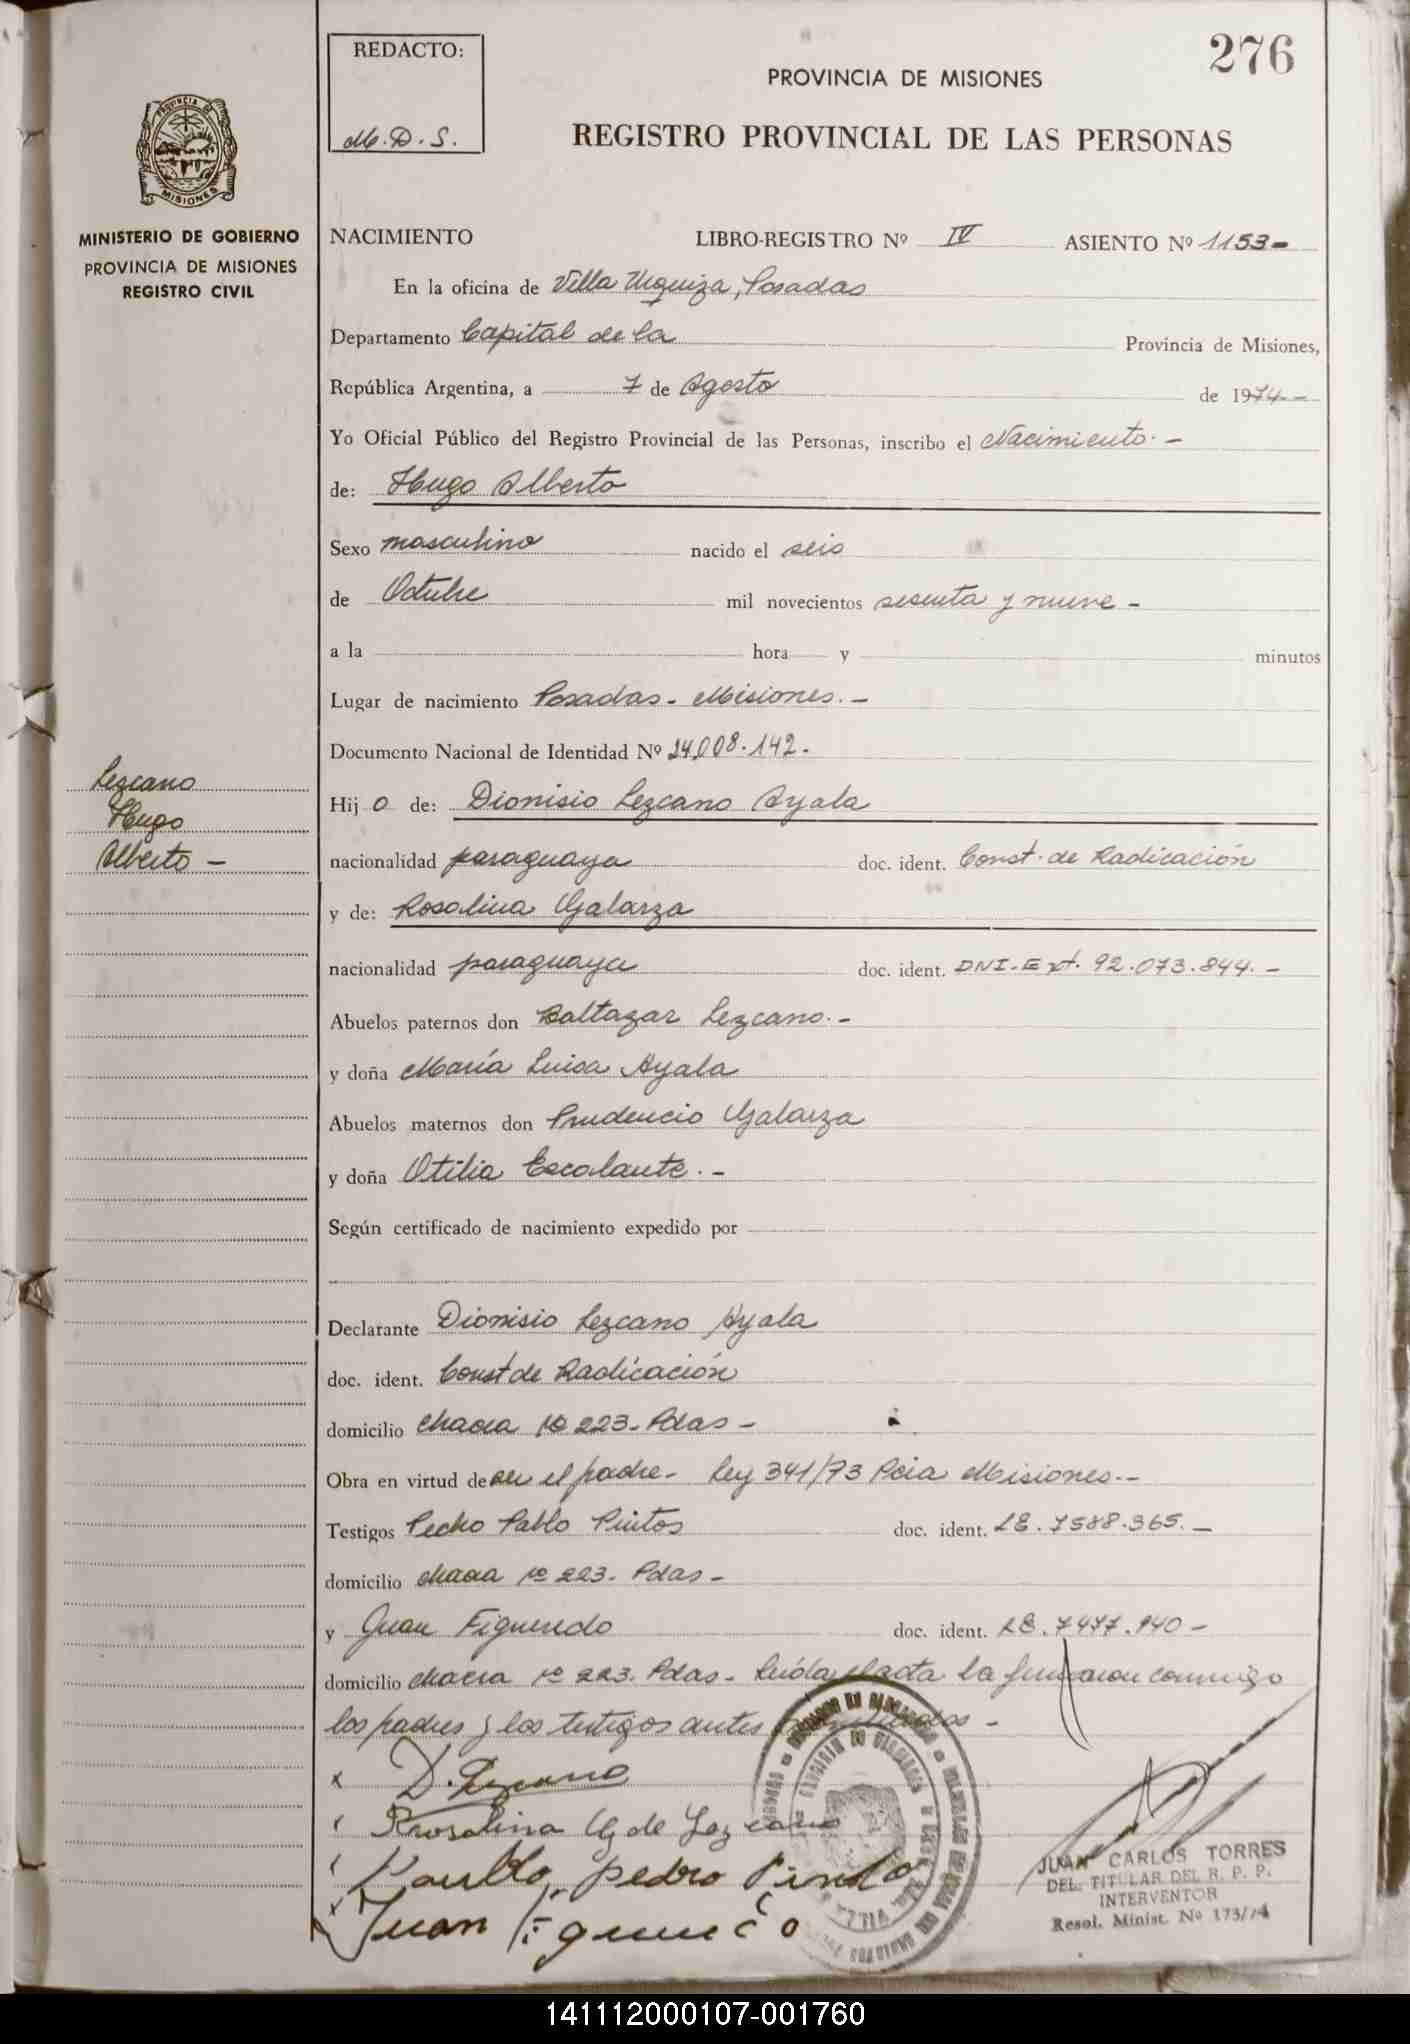 276
REDACTO:
M. D. S.
PROVINCIA DE MISIONES
REGISTRO PROVINCIAL DE LAS PERSONAS
PROVINCIA DE
MISIONES
MINISTERIO DE GOBIERNO
PROVINCIA DE MISIONES
REGISTRO CIVIL
NACIMIENTO LIBRO-REGISTRO Nº IV ASIENTO Nº 1153-
En la oficina de Villa Urquiza, Posadas
Departamento Capital de la Provincia de Misiones,
República Argentina, a 7 de Agosto de 1974-
Yo Oficial Público del Registro Provincial de las Personas, inscribo el Nacimiento.-
de: Hugo Alberto
Sexo masculino nacido el seis
de Octubre mil novecientos sesenta y nueve -
a la hora y minutos
Lugar de nacimiento Posadas - Misiones.-
Documento Nacional de Identidad Nº 24.008.142-
Lezcano
Hugo
Alberto -
Hij o de: Dionisio Lezcano Ayala
nacionalidad paraguaya doc. ident. Const. de Radicación
y de: Rosalina Galarza
nacionalidad paraguaya doc. ident. DNI-Ext. 92.073.844.-
Abuelos paternos don Baltazar Lezcano.-
y doña María Luisa Ayala
Abuelos maternos don Prudencio Galarza
y doña Otilia Escalante.-
Según certificado de nacimiento expedido por
Declarante Dionisio Lezcano Ayala
doc. ident. Const de Radicación
domicilio chacra Nº 223- Pdas -
Obra en virtud de ser el padre - Ley 341/73 Pcia Misiones.-
Testigos Pedro Pablo Pintos doc. ident. LE. 7588.365.-
domicilio chacra Nº 223. Pdas -
y Juan Figueredo doc. ident. LE. 7477.940 -
domicilio chacra Nº 223. Pdas - Leída el acta la firmaron conmigo
los padres y los testigos antes -
x D. Lezcano
Rosalina G de Lezcano
Paublo pedro Pinto
x Juan
JUAN CARLOS TORRES
DEL. TITULAR DEL R. P. P.
INTERVENTOR
Resol. Minist. Nº 173/74
141112000107-001760